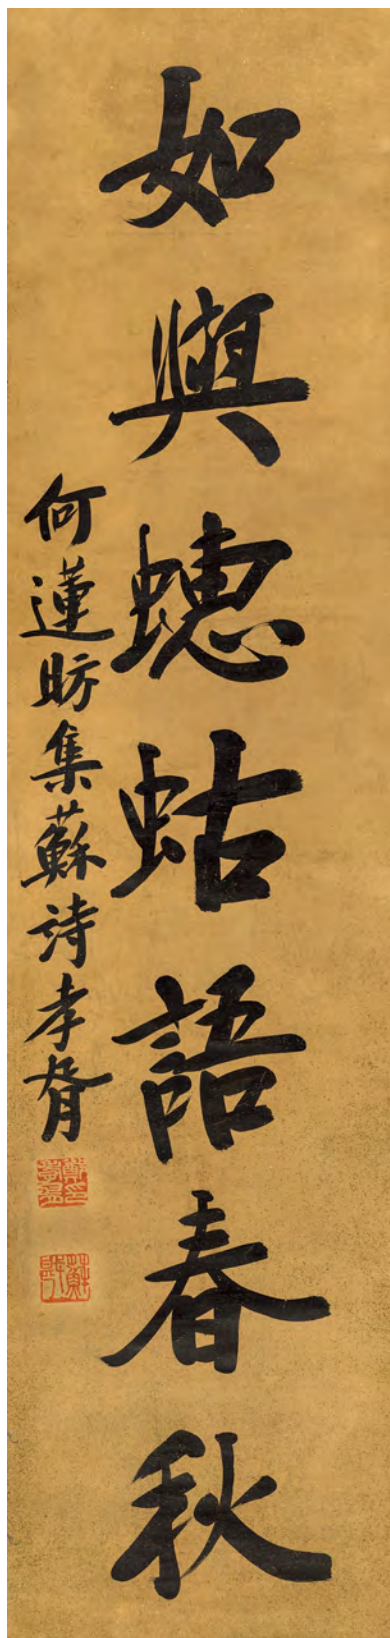 如與蟪蛄語春秋
何蓮昉集蘇詩孝胥